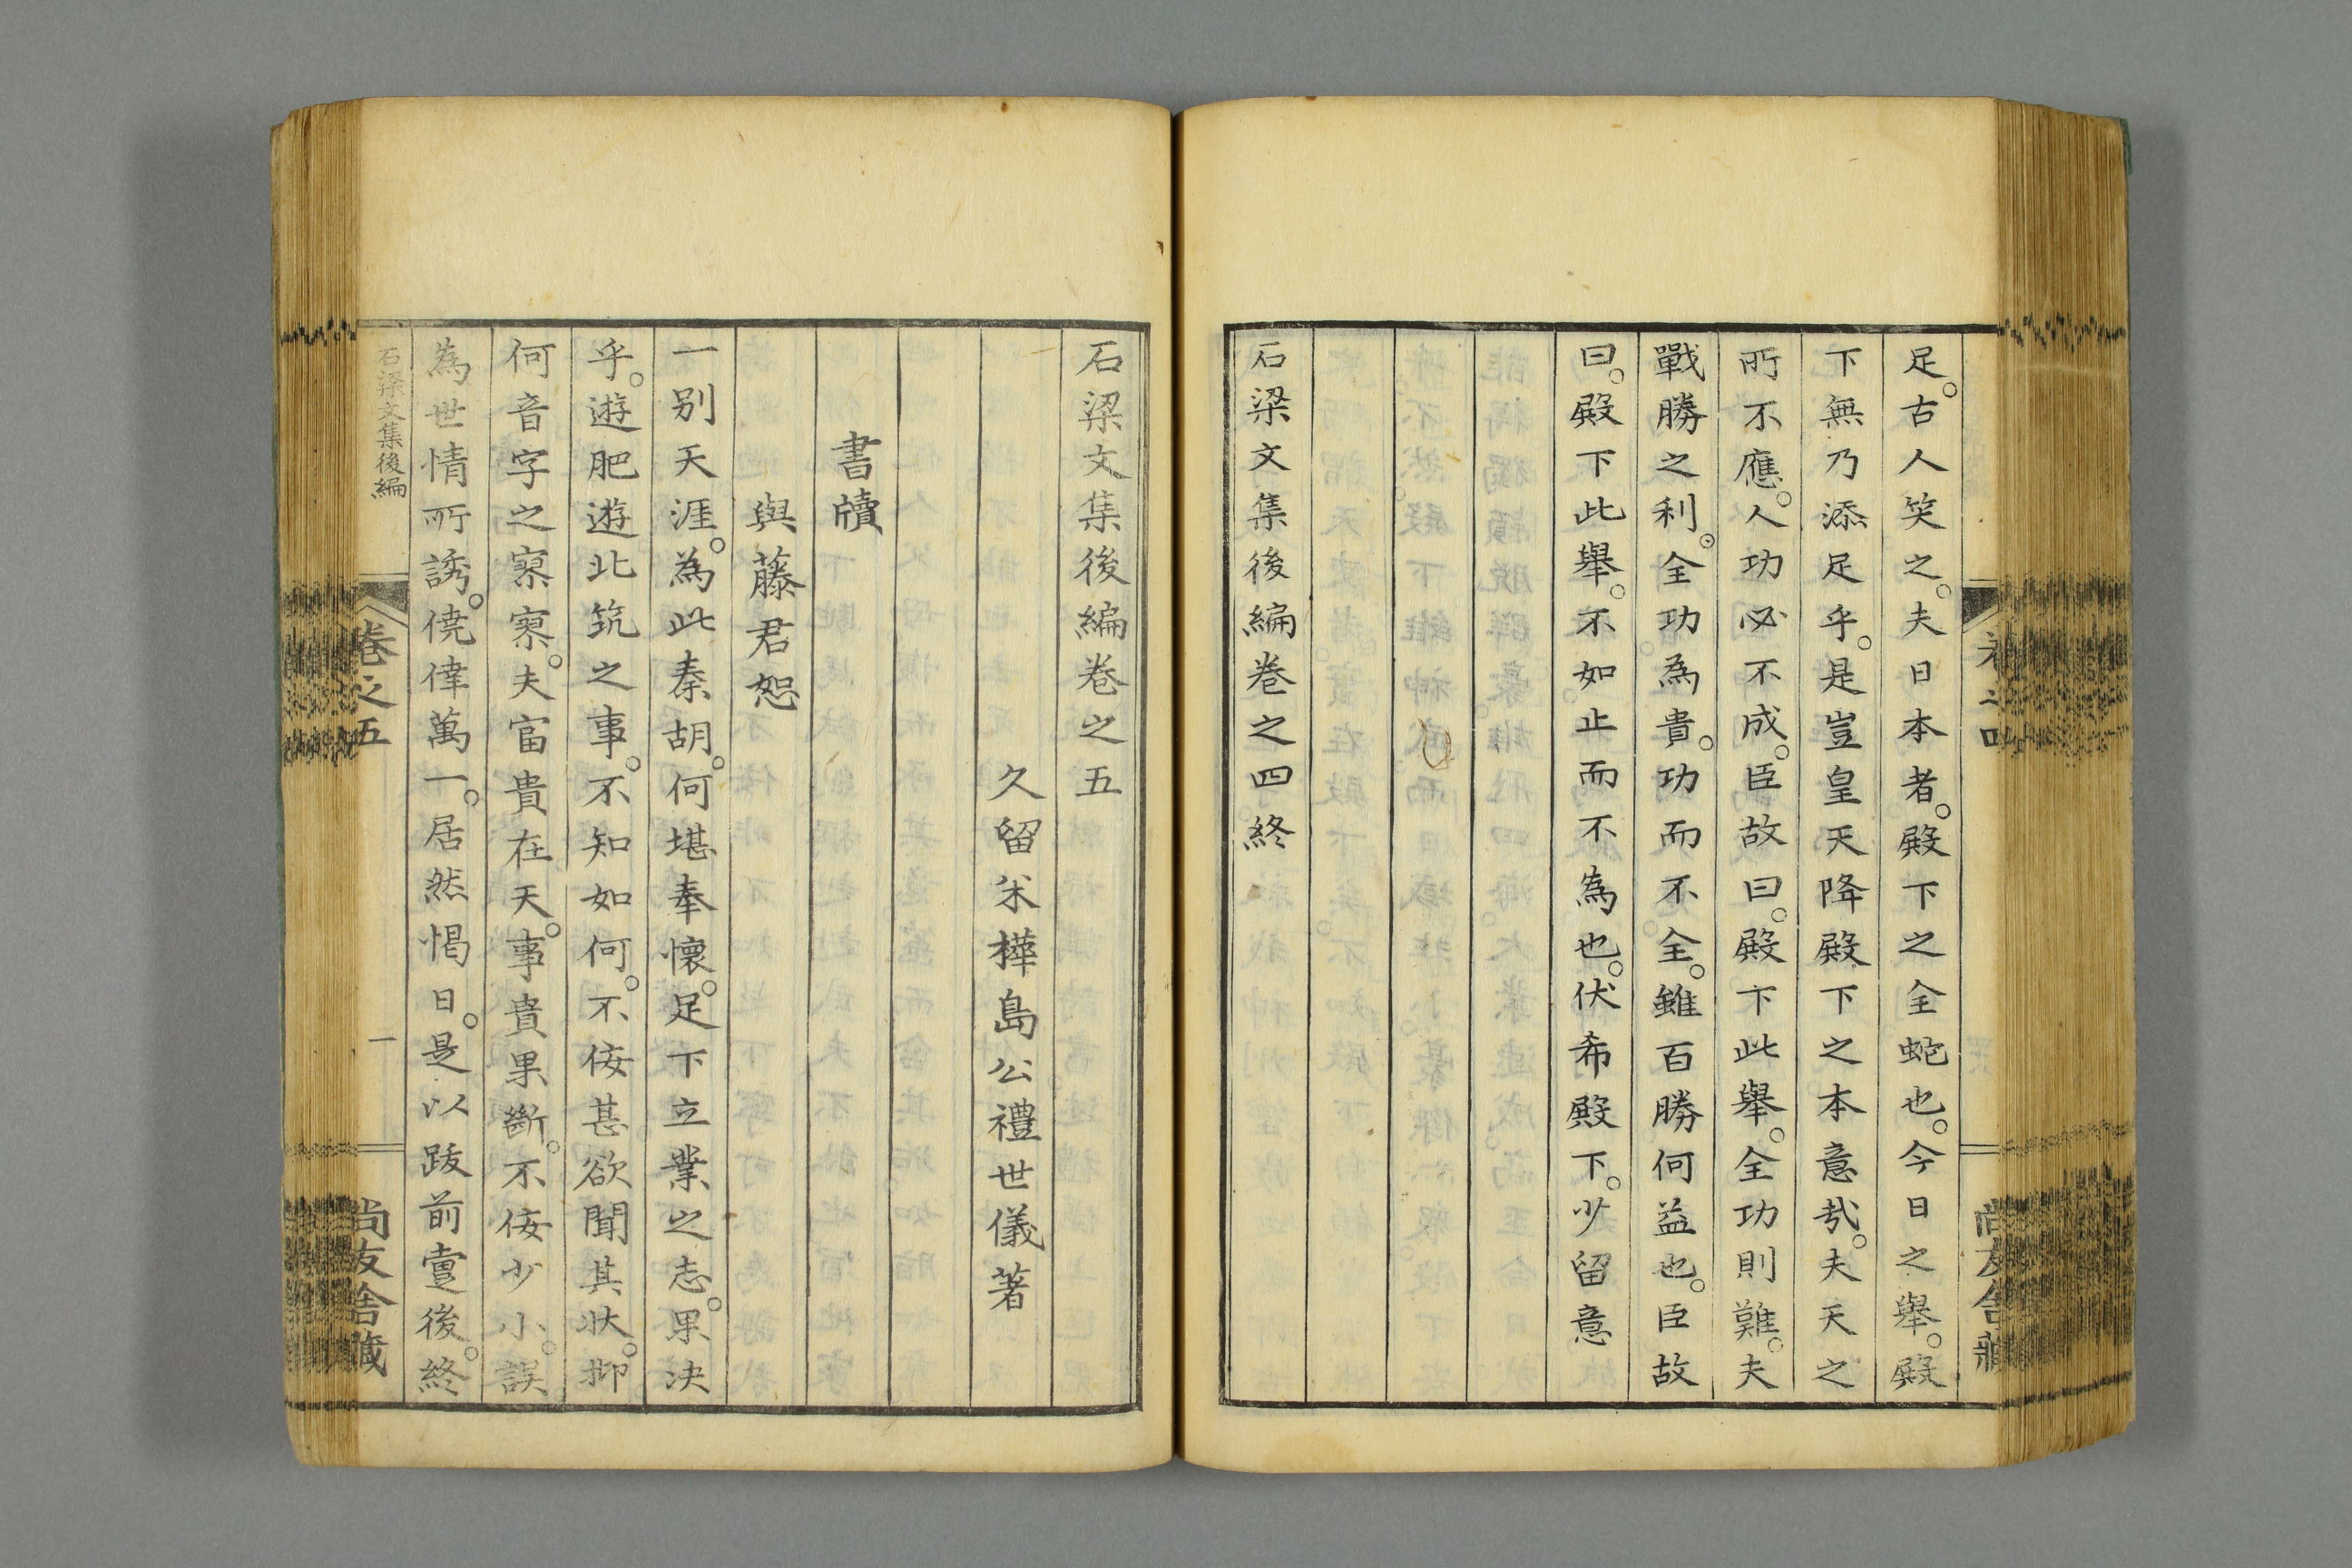 足。古人笑之。夫日本者。殿下之全蛇也。今日之舉。殿
下無乃添足乎。是豈皇天降殿下之本意哉。夫天之
所不應。人功必不成。臣故曰。殿下此舉。全功則難。夫
戰勝之利。全功為貴。功而不全。雖百勝何益也。臣故
曰。殿下此舉。不如止而不為也。伏希殿下。少留意
石梁文集後編卷之四終
石梁文集後編卷之五
久留米樺島公禮世儀著
書牘
與藤君恕
一別天涯。為此秦胡。何堪奉懷。足下立業之志。果決
乎。遊肥遊此筑之事。不知如何。不侫甚欲聞其狀。抑
何音字之寥寥。夫富貴在天。事貴果斷。不侫少小。誤
為世情所誘。僥倖萬一。居然愒日。是以跋前疐後。終
石梁文集後編
卷之五
一
尚友舍藏